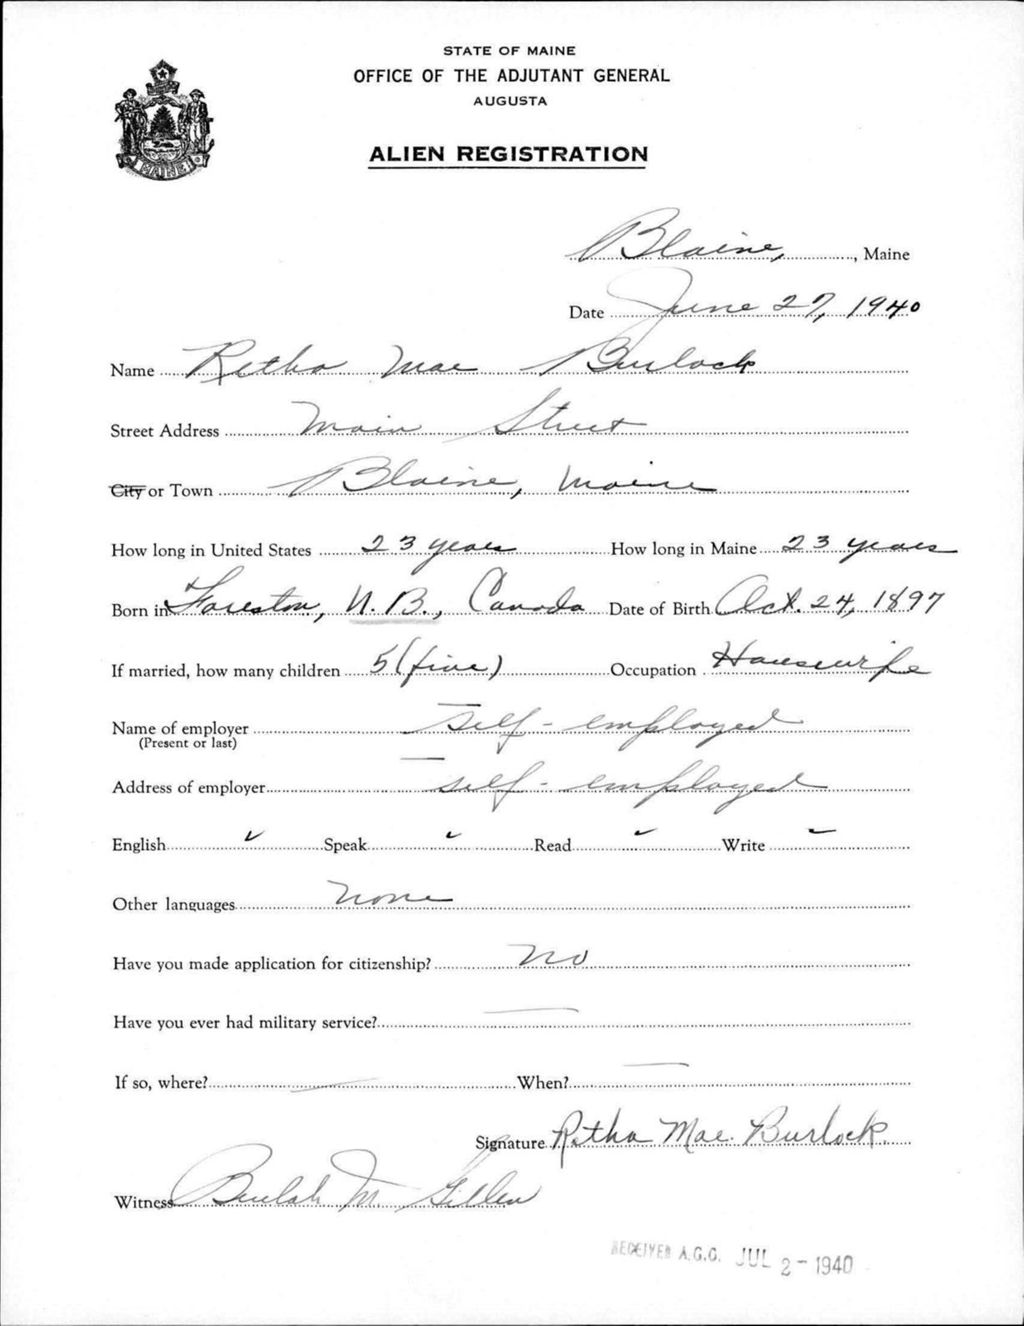 STATE OF MAINE
OFFICE OF THE ADJUTANT GENERAL
AUGUSTA
ALIEN REGISTRATION
MAINE
Blaine, , Maine
Date June 27, 1940
Name Retha Mae Burlock
Street Address Main Street
City or Town Blaine, Maine
How long in United States 23 years How long in Maine 23 years
Born in Foreston, N.B., Canada Date of Birth Oct. 24, 1897
If married, how many children 5 (five) Occupation Housewife
Name of employer self-employed
(Present or last)
Address of employer self-employed
English ✓ Speak ✓ Read ✓ Write ✓
Other languages none
Have you made application for citizenship? no
Have you ever had military service? —
If so, where? — When? —
Signature Retha Mae Burlock
Witness Beulah M. Gillen
RECEIVED A.G.O. JUL 2 - 1940